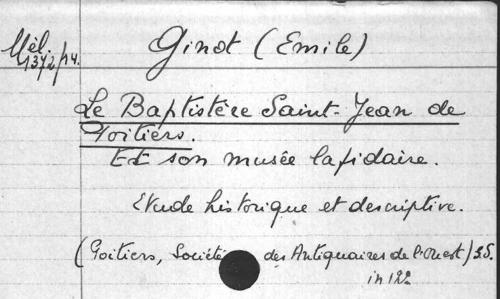 Mél.
1372/14.
Ginot (Emile)
Le Baptistère Saint-Jean de
Poitiers.
Et son musée lapidaire.
Etude historique et descriptive.
(Poitiers, Société des Antiquaires de l'Ouest) S.S.
in 122